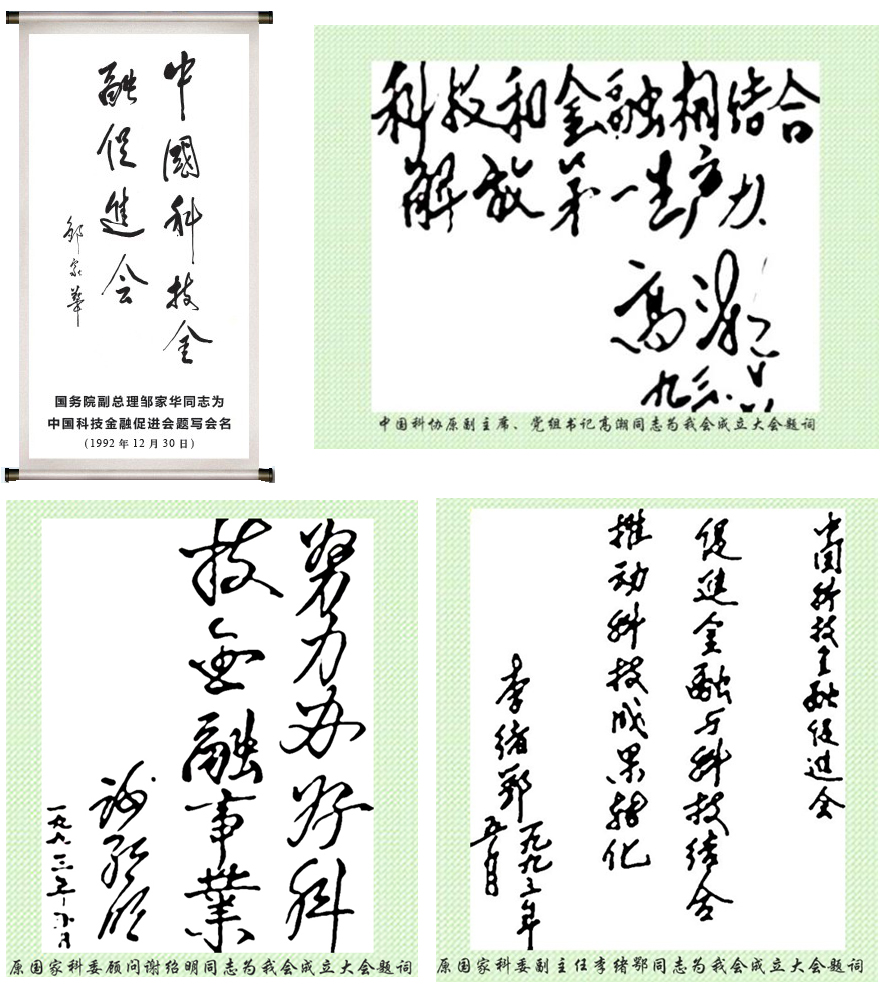 中國科技金
融促進会
邹家華
国务院副总理邹家华同志为
中国科技金融促进会题写会名
(1992 年 12 月 30 日)
科技和金融相结合
解放第一生产力
高潮
九三.
中国科协原副主席、党组书记高潮同志为我会成立大会题词
努力办好科
技金融事業
谢绍明
一九九三年
原国家科委顾问谢绍明同志为我会成立大会题词
中国科技金融促进会
促進金融与科技结合
推动科技成果转化
李绪鄂
一九九三年
五月
原国家科委副主任李绪鄂同志为我会成立大会题词